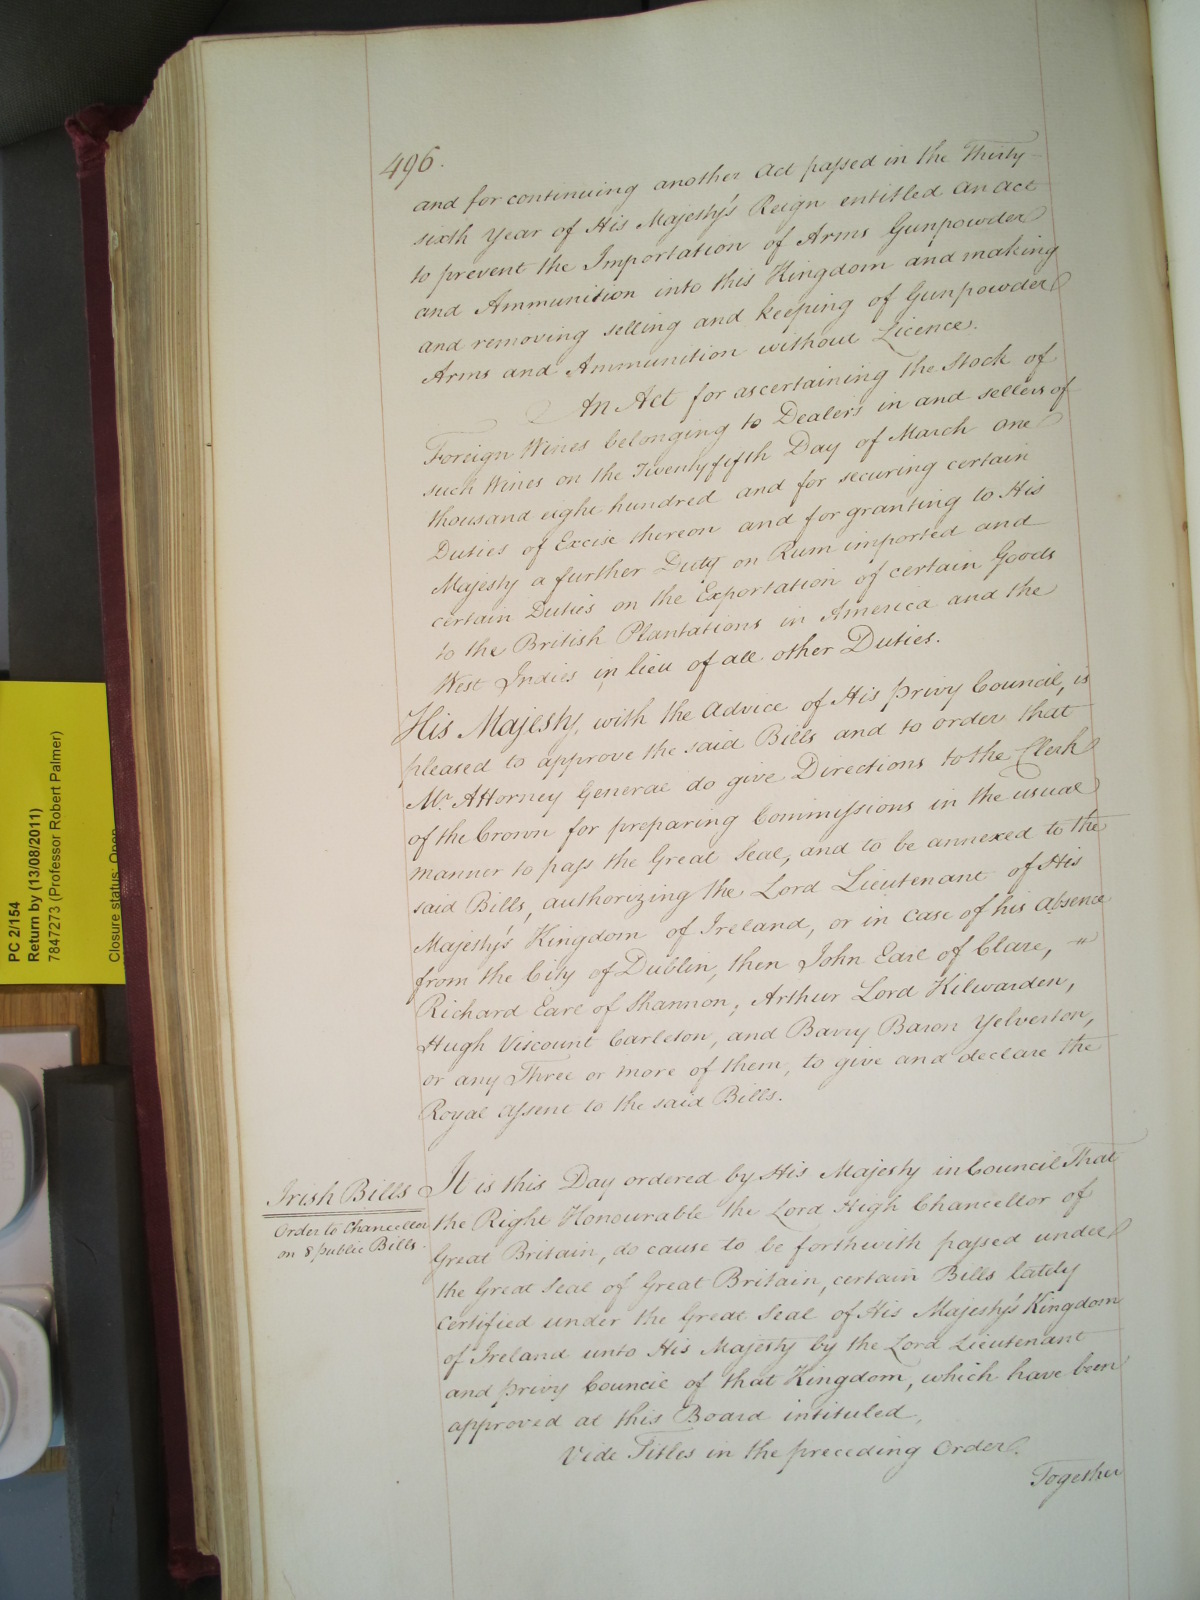 496.
and for continuing another Act passed in the Thirty
sixth Year of His Majesty's Reign entitled An Act
to prevent the Importation of Arms Gunpowder
and Ammunition into this Kingdom and making
and removing selling and keeping of Gunpowder
Arms and Ammunition without Licence.
An Act for ascertaining the Stock of
Foreign Wines belonging to Dealers in and sellers of
such Wines on the Twentyfifth Day of March one
thousand eight hundred and for securing certain
Duties of Excise thereon and for granting to His
Majesty a further Duty on Rum imported and
certain Duties on the Exportation of certain Goods
to the British Plantations in America and the
West Indies in lieu of all other Duties.
His Majesty, with the Advice of His Privy Council, is
pleased to approve the said Bills and to order that
Mr. Attorney General do give Directions to the Clerk
of the Crown for preparing Commissions in the usual
manner to pass the Great Seal, and to be annexed to the
said Bills, authorizing the Lord Lieutenant of His
Majesty's Kingdom of Ireland, or in case of his absence
from the City of Dublin, then John Earl of Clare, "
Richard Earl of Shannon, Arthur Lord Kilwarden,
Hugh Viscount Carleton, and Barry Baron Yelverton,
or any Three or more of them, to give and declare the
Royal Assent to the said Bills.
Irish Bills
Order to Chancellor
on 8 public Bills.
It is this Day ordered by His Majesty in Council That
the Right Honourable the Lord High Chancellor of
Great Britain, do cause to be forthwith passed under
the Great Seal of Great Britain, certain Bills lately
certified under the Great Seal of His Majesty's Kingdom
of Ireland unto His Majesty by the Lord Lieutenant
and Privy Council of that Kingdom, which have been
approved at this Board intituled,
Vide Titles in the preceding Order.
Together
PC 2/154
Return by (13/08/2011)
7847273 (Professor Robert Palmer)
Closure status: Open